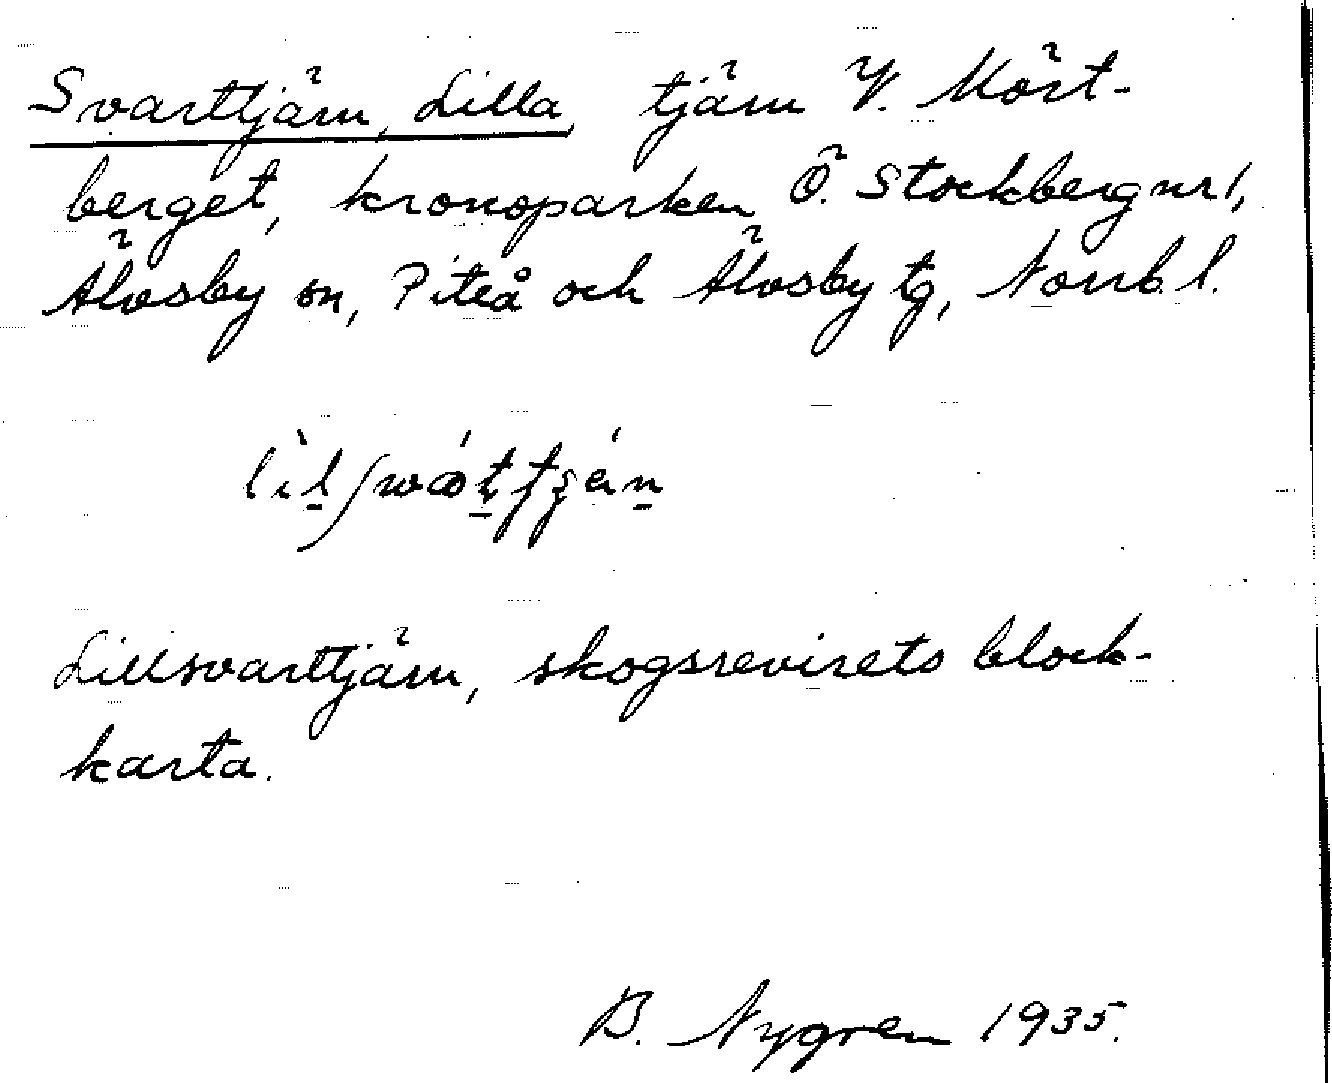 Svarttjärn, Lilla, tjärn V. Mört-
berget, kronoparken Ö. Stockberg nr 1,
Älvsby sn, Piteå och Älvsby tg, Norrb. l.
Lillsvarttjärn, skogsrevirets block-
karta.
B. Nygren 1935.